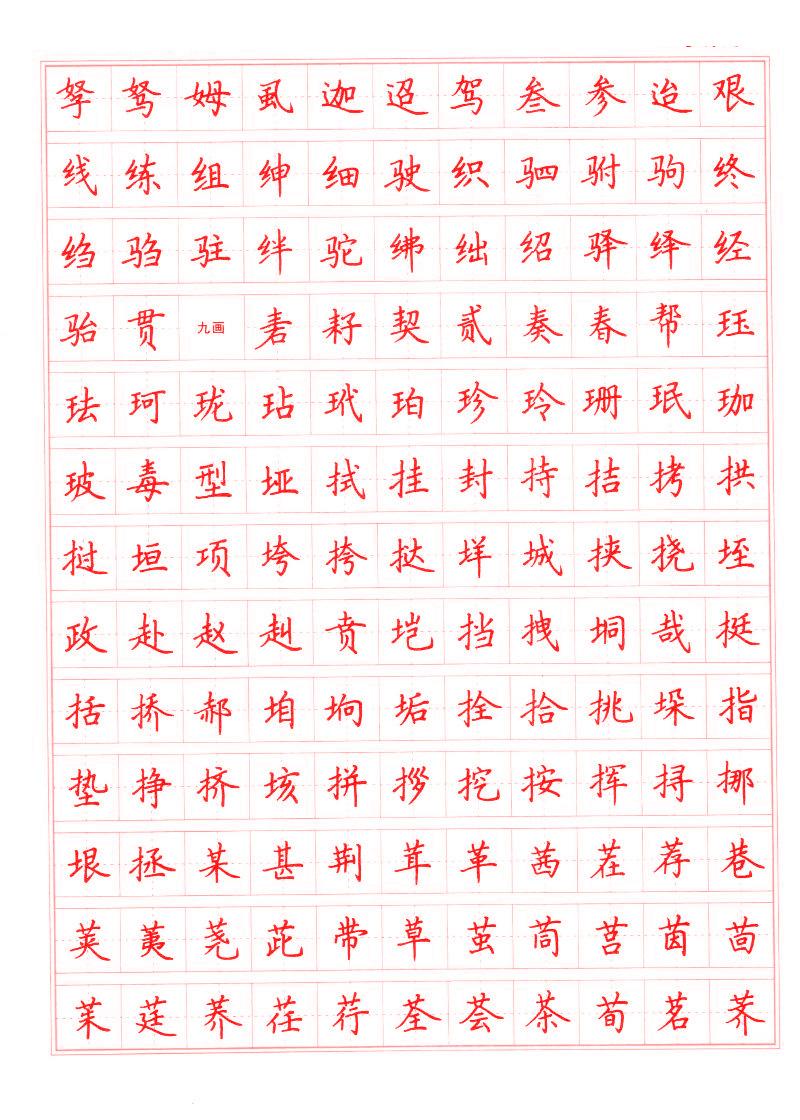 孥 驽 姆 虱 迦 迢 驾 叁 参 迨 艰
线 练 组 绅 细 驶 织 驷 驸 驹 终
绉 驺 驻 绊 驼 绋 绌 绍 驿 绎 经
骀 贯 九画 砉 耔 契 贰 奏 春 帮 珏
珐 珂 珑 玷 玳 珀 珍 玲 珊 珉 珈
玻 毒 型 垭 拭 挂 封 持 拮 拷 拱
挝 垣 项 垮 挎 挞 垟 城 挟 挠 垤
政 赴 赵 赳 贲 垲 挡 拽 垌 哉 挺
括 挢 郝 垍 垧 垢 拴 拾 挑 垛 指
垫 挣 挤 垓 拼 拶 挖 按 挥 挦 挪
垠 拯 某 甚 荆 茸 革 茜 茬 荐 巷
荚 荑 荛 茈 带 草 茧 茼 莒 茵 茴
茱 莛 荞 荏 荇 荃 荟 茶 荀 茗 荠